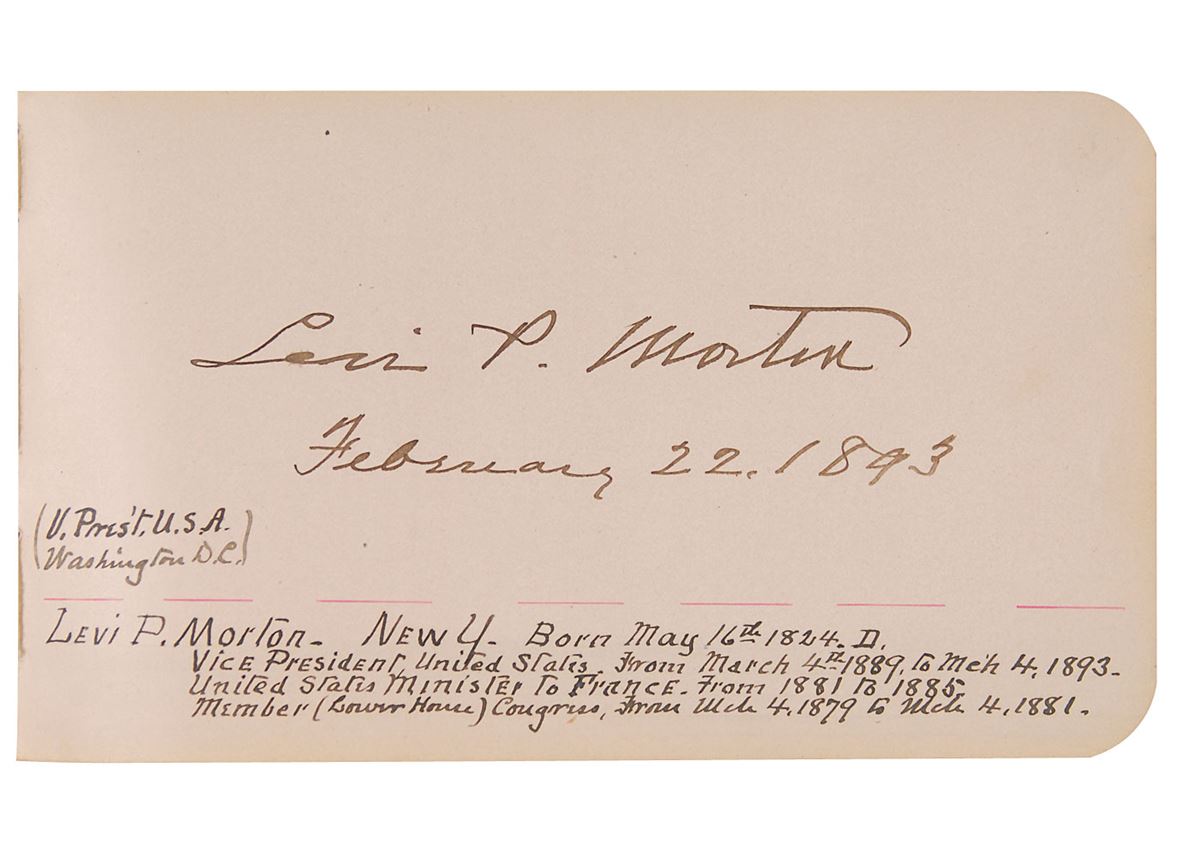 Levi P. Morton
February 22. 1893
(V. Pres't. U.S.A.
Washington D.C.)
Levi P. Morton - New Y. Born May 16th 1824. D.
Vice President, United States. From March 4th 1889, to Mch 4, 1893-
United States Minister to France. From 1881 to 1885.
Member (Lower House) Congress, From Mch 4, 1879 to Mch 4, 1881.